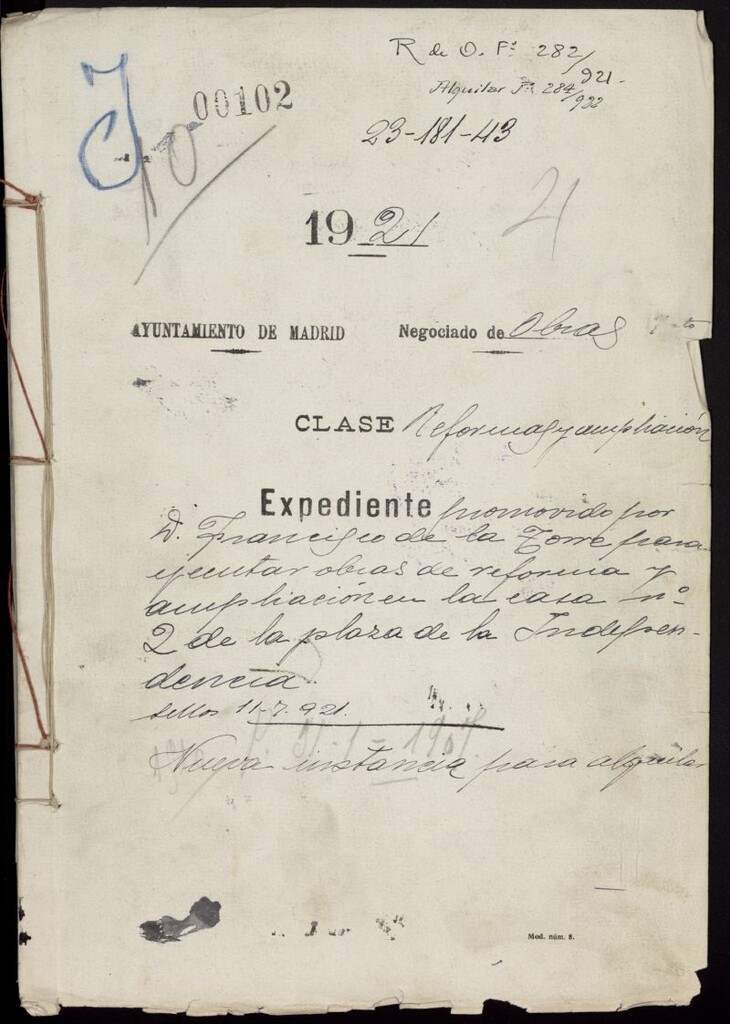 R de O. Fº 282/921.
00102
Alquilar Fº 284/922
23-181-43
1921
21
AYUNTAMIENTO DE MADRID Negociado de Obras
CLASE Reformas y ampliación
Expediente promovido por
D. Francisco de la Torre para
ejecutar obras de reforma y
ampliación en la casa nº
2 de la plaza de la Indepen-
dencia.
sellos 11-7-921.
Nueva instancia para alquilar
Mod. núm. 8.